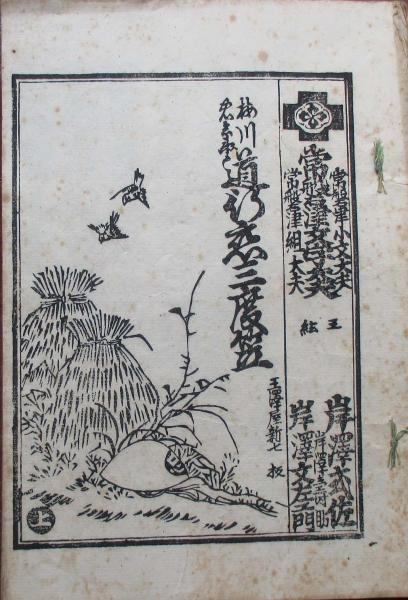 常磐津小文字太夫
常磐津文字太夫
常磐津組太夫
三
絃
岸澤式佐
岸澤文左エ門
梅川
忠兵衛
道行恋三度笠
玉澤屋新七板
上